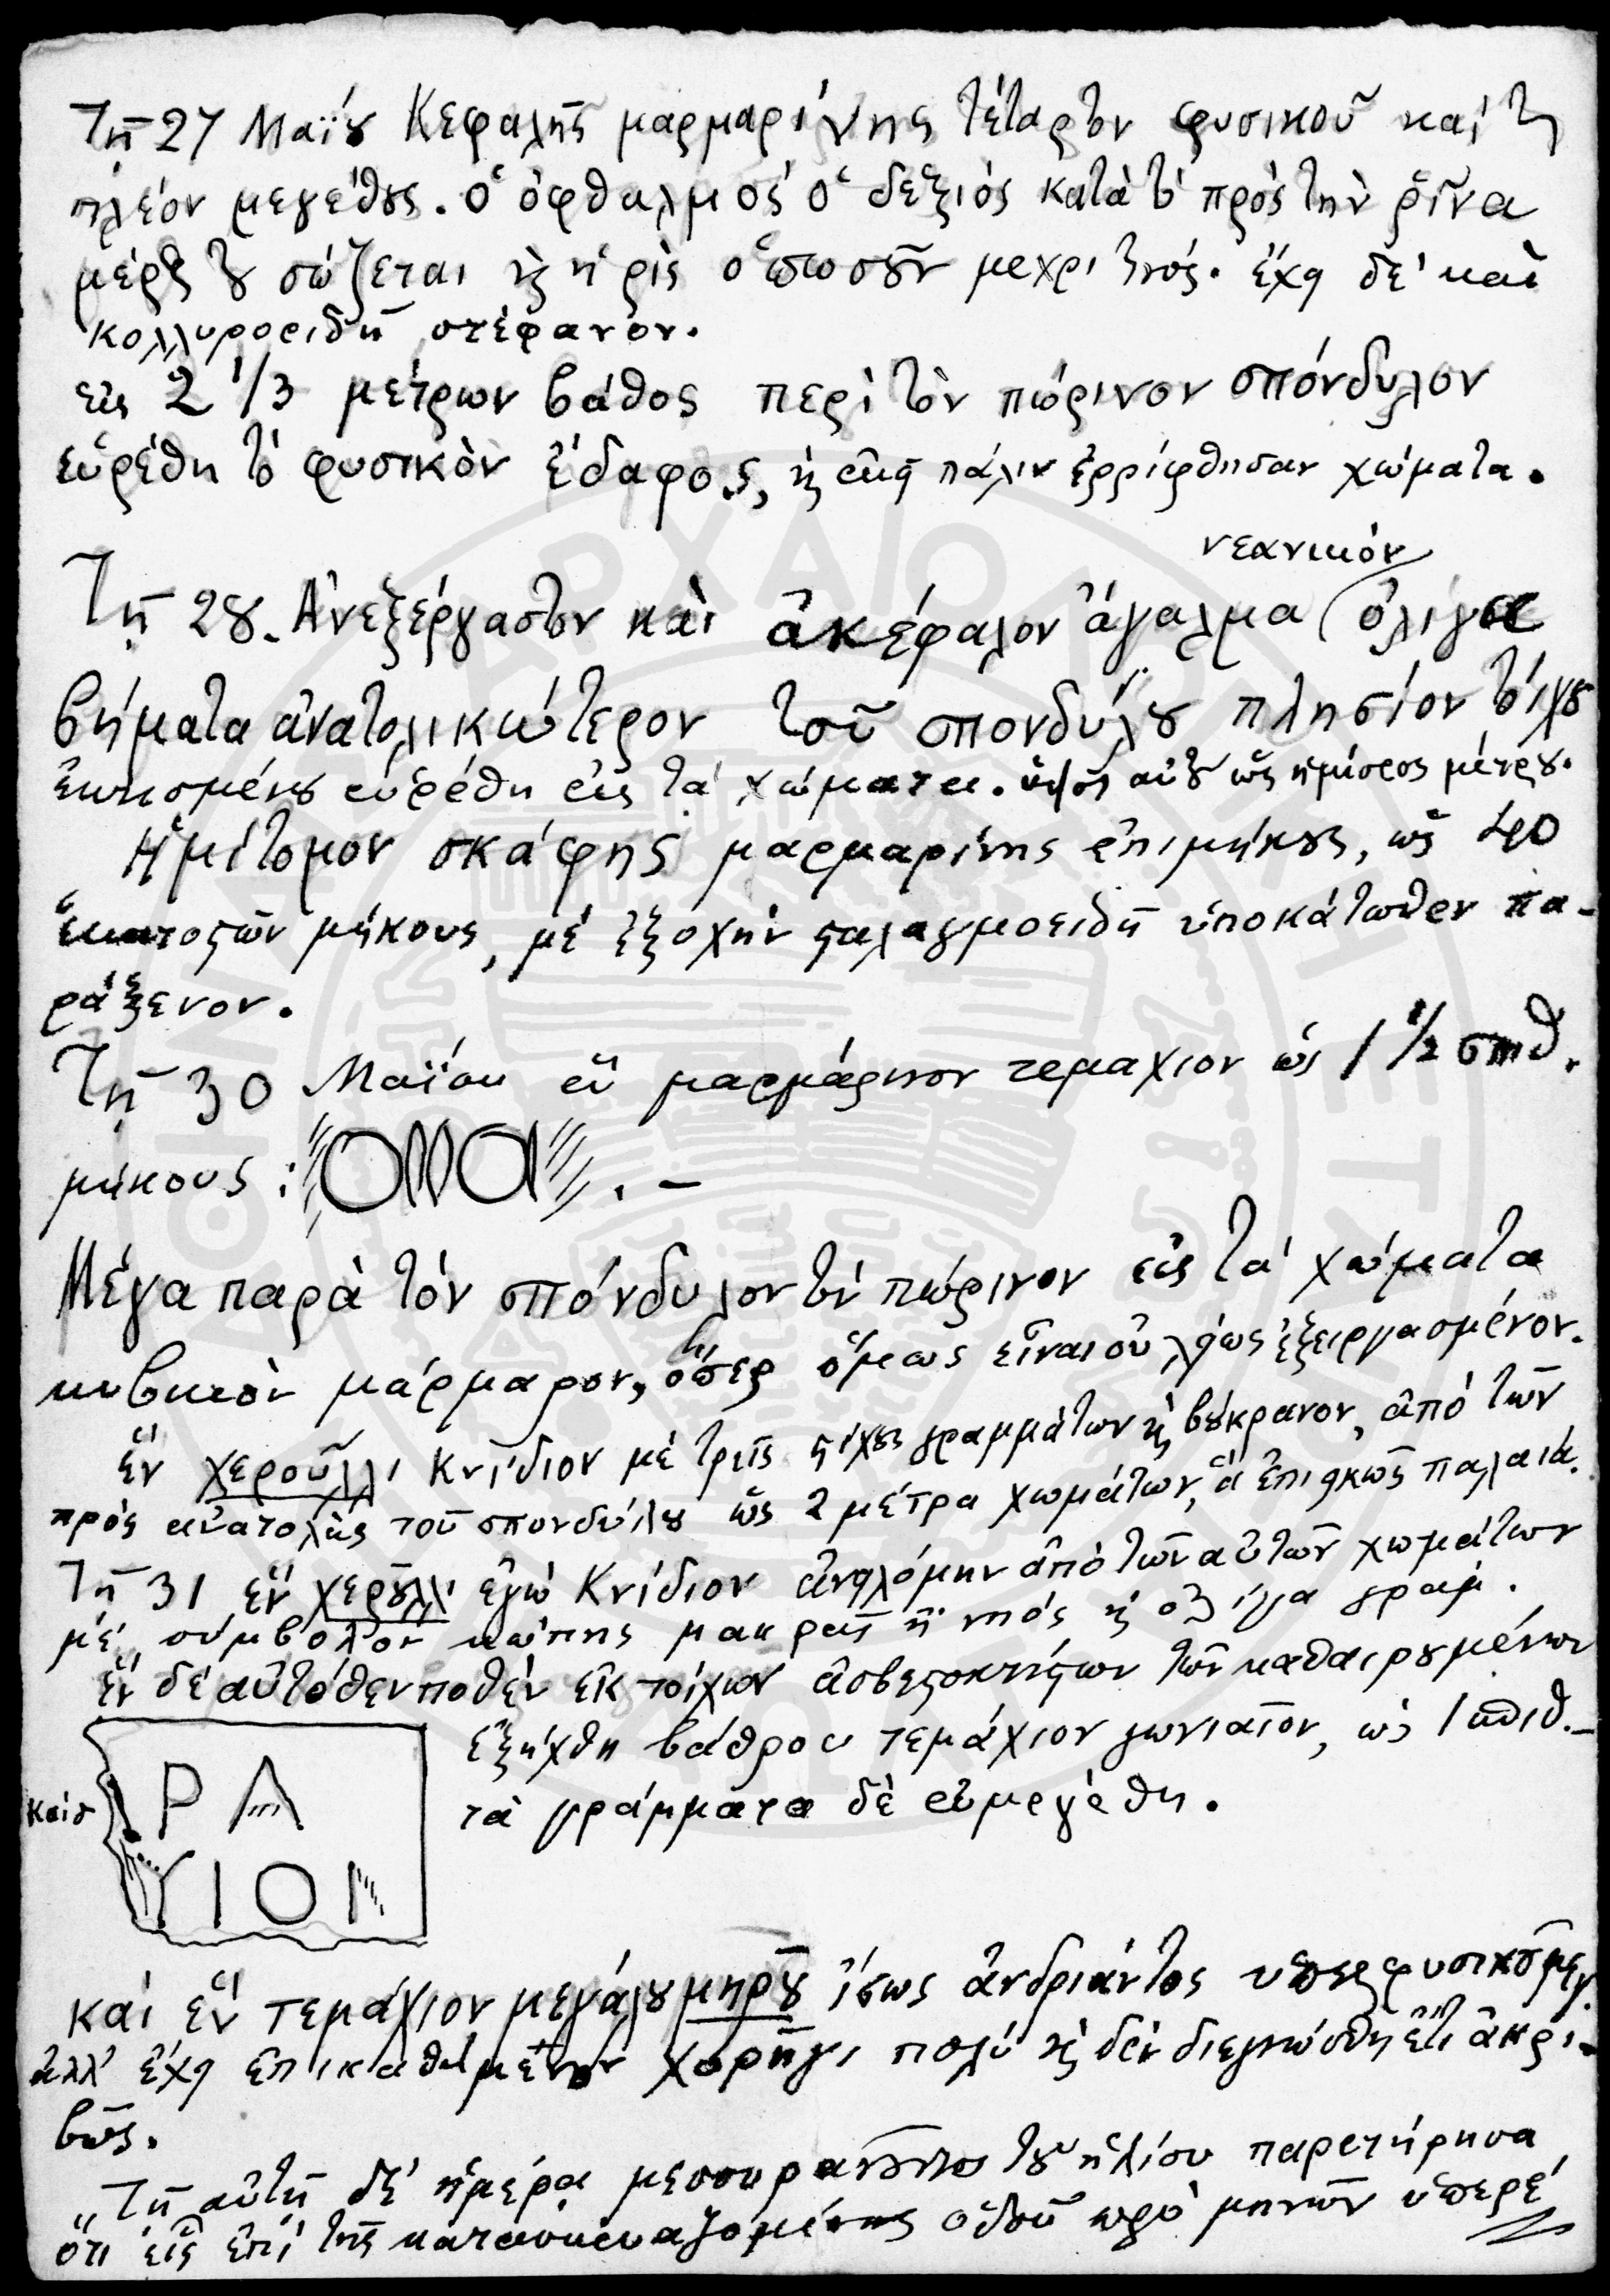 Τῇ 27 Μαΐου Κεφαλῆς μαρμαρίνης τέταρτον φυσικοῦ καί τι
πλέον μεγέθους. ὁ ὀφθαλμὸς ὁ δεξιὸς κατὰ τὸ πρὸς τὴν ῥῖνα
μέρος του σώζεται καὶ ἡ ῥὶς ὁπωσοῦν μεχρι τινός. ἔχει δὲ καὶ
κολλυροειδῆ στέφανον.
εἰς 2 1/3 μέτρων βάθος περὶ τὸν πώρινον σπόνδυλον
εὑρέθη τὸ φυσικὸν ἔδαφος, καὶ ἐκεῖ πάλιν ἐρρίφθησαν χώματα.
νεανικὸν
Τῇ 28. Ἀνεξέργαστον καὶ ἀκέφαλον ἄγαλμα ὀλίγα
βήματα ἀνατολικώτερον τοῦ σπονδύλου πλησίον
εὑρέθη εἰς τὰ χώματα. ὕψος αὐτοῦ ὡς ἡμίσεος μέτρου.
Ἡμίτομον σκάφης μαρμαρίνης ἐπιμήκους, ὡς 40
ἑκατοστῶν μήκους, μὲ ἐξοχὴν σταλαγμοειδῆ ὑποκάτωθεν πα-
ράξενον.
Τῇ 30 Μαΐου ἓν μαρμάρινον τεμαχιον ὡς 1 1/2 σπιθ.
μήκους : . –
Μέγα παρὰ τὸν σπόνδυλον τὸν πώρινον εἰς τὰ χώματα
κυβικὸν μάρμαρον, ὅπερ ὅμως εἶναι οὐλῶς ἐξειργασμένον.
ἓν χεροῦλλι Κνίδιον μὲ τρεῖς στίχους γραμμάτων καὶ βούκρανον, ἀπὸ τῶν
πρὸς ἀνατολὰς τοῦ σπονδύλου ὡς 2 μέτρα χωμάτων, ἃ ἐπιεικῶς παλαιά.
Τῇ 31 ἓν χεροῦλλι ἐγὼ Κνίδιον ἀνειλόμην ἀπὸ τῶν αὐτῶν χωμάτων
μὲ σύμβολον κώπης μακρᾶς ἢ νηός καὶ ὀλίγα γραμ.
ἓν δὲ αὐτόθεν ποθὲν ἐκ τοίχων ἀσβεστοκτίστων τῶν καθαιρουμένων
ἐξήχθη βάθρου τεμάχιον γωνιαῖον, ὡς 1 σπιθ.–
Καίσ
ΡΑ
ΥΙΟΝ
τὰ γράμματα δὲ εὐμεγέθη.
καὶ ἓν τεμάχιον μεγάλου μηροῦ ἴσως ἀνδριάντος ὑπερφυσικοῦ μεγ.
ἀλλ' ἔχει ἐπικαθήμενον χορῆγι πολὺ καὶ δὲν διεγνώσθη ἔτι ἀκρι-
βῶς.
„Τῇ αὐτῇ δὲ ἡμέρᾳ μεσουρανοῦντος τοῦ ἡλίου παρετήρησα
ὅτι εἰς ἐπὶ τῆς κατασκευαζομένης ὁδοῦ πρὸ μηνῶν ὑπερέ